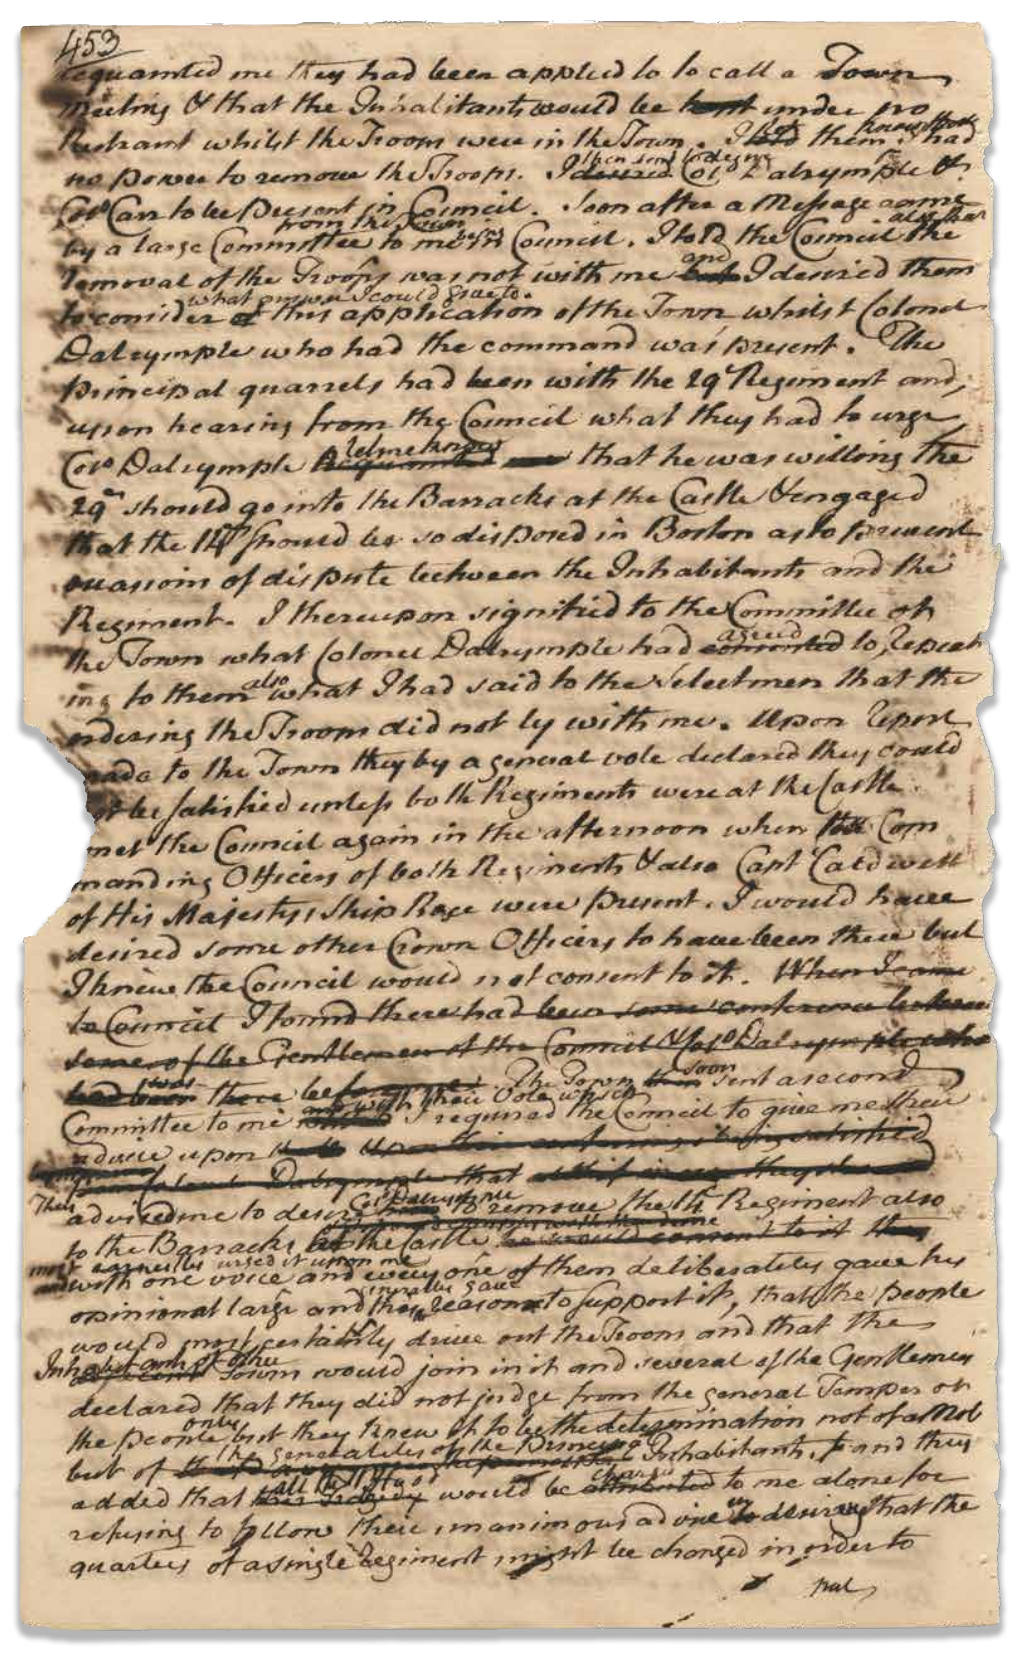 453
acquainted me they had been applied to to call a Town
meeting & that the Inhabitants would be kept under no
Restraint whilst the Troops were in the Town. I told them I had
then sent to desire
no power to remove the Troops. I desired Col° Dalrymple &
Col° Carr to be present in Council. Soon after a Message came
from the Town
by a large Committee to me in Council. I told the Council the
and
removal of the Troops was not with me but I desired them
what answer I could give to
to consider of this application of the Town whilst Colonel
Dalrymple who had the command was present. The
principal quarrels had been with the 29 Regiment and,
upon hearing from the Council what they had to urge
let me know
Col° Dalrymple acquainted me that he was willing the
29th should go into the Barracks at the Castle & engaged
that the 14th should be so disposed in Boston as to prevent
occasions of dispute between the Inhabitants and the
Regiment. I thereupon signified to the Committee of
agreed
the Town what Colonel Dalrymple had consented to, repeat
also
ing to them what I had said to the Selectmen that the
ordering the Troops did not ly with me. Upon report
made to the Town they by a general vote declared they could
not be satisfied unless both Regiments were at the Castle.
met the Council again in the afternoon when the Com
manding Officers of both Regiments & also Capt Caldwell
of His Majestys Ship Rose were present. I would have
desired some other Crown Officers to have been there but
I knew the Council would not consent to it. When I came
to Council I found there had been some conference between
some of the Gentlemen of the Council & Col° Dalrymple who
was soon
had been there before me. The Town then sent a second
with their Vote which
Committee to me I required the Council to give me their
advice upon
Colonel Dalrymple that
They Col° Dalrymple
advised me to desire him to remove the 14 Regiment also
to the Barracks at the Castle he would consent to it
most earnestly urged it upon me
and with one voice and every one of them deliberately gave his
generally gave
opinion at large and their reasons to support it, that the people
would most certainly drive out the Troops and that the
Inhabitants of other
Towns would join in it and several of the Gentlemen
declared that they did not judge from the general Temper of
only
the people but they knew it to be the determination not of a Mob
the generality of the principal
but of Inhabitants, and they
all the blood charged
added that this Tragedy would be attributed to me alone for
refusing to follow their unanimous advice in desiring that the
quarters of a single Regiment might be changed in order to
put